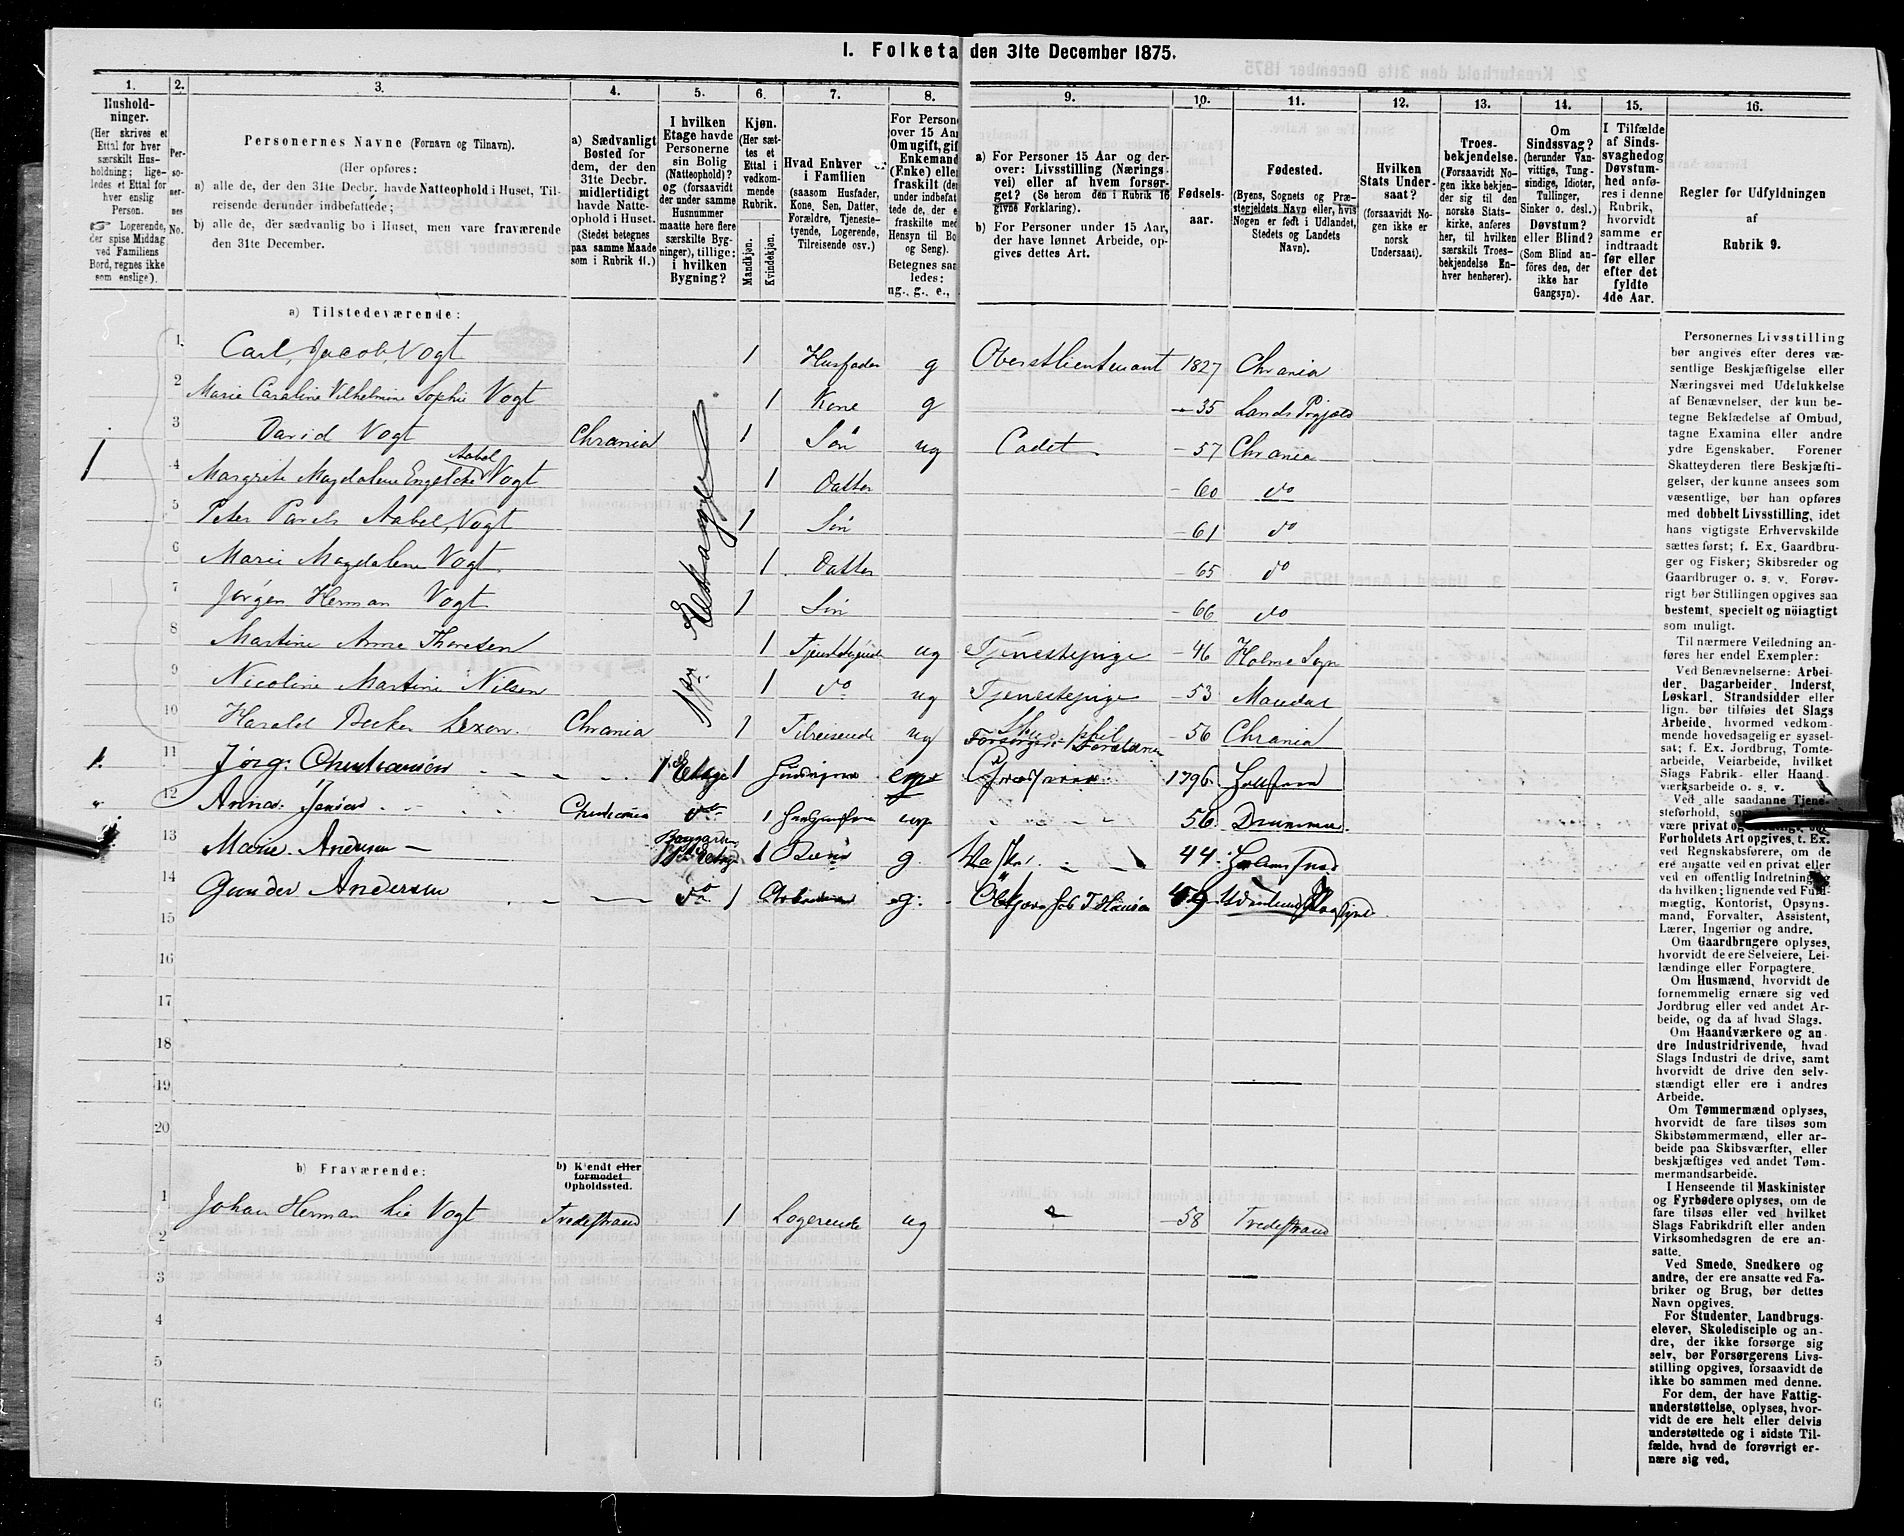 I. Folketa den 31te December 1875.
1. 2. 3. 4. 5. 6. 7. 8. 9. 10. 11. 12. 13. 14. 15. 16.
Hushold-
ninger.
(Her skrives et
Ettal for hver
særskilt Hus-
holdning; lige-
ledes et Ettal for
hver enslig
Person.
☞ Logerende,
der spise Middag
ved Familiens
Bord, regnes ikke
som enslige).
Per-
so-
ner-
nes
No.
Personernes Navne (Fornavn og Tilnavn).
(Her opføres:
a) alle de, der den 31te Decbr. havde Natteophold i Huset, Til-
reisende derunder indbefattede;
b) alle de, der sædvanlig bo i Huset, men vare fraværende
den 31te December.
a) Sædvanligt
Bosted for
dem, der den
31te Decbr.
midlertidigt
havde Natte-
ophold i Huset.
(Stedet betegnes
paa samme Maade
som i Rubrik 11.)
I hvilken
Etage havde
Personerne
sin Bolig
(Natteophold)?
og (forsaavidt
der under samme
Husnummer
maatte høre flere
særskilte Byg-
ninger), tillige:
i hvilken
Bygning?
Kjøn.
(Her sæt-
tes et
Ettal i
vedkom-
mende
Rubrik.
Mandkjøn.
Kvindekjøn.
Hvad Enhver er
i Familien
(saasom Husfader,
Kone, Søn, Datter,
Forældre, Tjeneste-
tyende, Logerende,
Tilreisende osv.)
For Person
over 15 Aar
Om ugift, gif
Enkemand
(Enke) elle
fraskilt (de
under indbefat
tede de, der e
fraskilte me
Hensyn til Bo
og Seng).
Betegnes saa
ledes:
ug., g., e.,
a) For Personer 15 Aar og der-
over: Livsstilling (Nærings-
vei) eller af hvem forsør-
get? (Se herom den i Rubrik 16
givne Forklaring).
b) For Personer under 15 Aar,
der have lønnet Arbeide, op-
gives dettes Art.
Fødsels-
aar.
Fødested.
(Byens, Sognets og Præ-
stegjeldets Navn eller, hvis
Nogen er født i Udlandet,
Stedets og Landets
Navn).
Hvilken
Stats Under-
saat?
(forsaavidt No-
gen ikke er
norsk
Undersaat).
Troes-
bekjendelse.
(Forsaavidt No-
gen ikke bekjen-
der sig til den
norske Stats-
kirke, anføres
her, til hvilken
særskilt Troes-
bekjendelse En-
hver henhører).
Om
Sindssvag?
(herunder Van-
vittige, Tung-
sindige, Idioter,
Tullinger,
Sinker o. desl.)
Døvstum?
eller Blind?
(Som Blind an-
føres den, der
ikke har
Gangsyn).
I Tilfælde
af Sinds-
svaghed og
Døvstum-
hed anfø-
res i denne
Rubrik,
hvorvidt
samme er
indtraadt
før eller
efter det
fyldte
4de Aar.
Regler før Udfyldningen
af
Rubrik 9.
a) Tilstedeværende:
1. Carl Jacob Vogt 1 Husfader g Oberstlieutenant 1827 Chrania
2 Marie Caroline Vilhelmine Sophie Vogt 1 Kone g - 35 Lands Prgjæld
3 David Vogt Chrania 1 Søn ug Cadet - 57 Chrania
1 4 Margrete Magdalene Engelcke Aabel Vogt 1 Datter - 60 do
5 Peter Pavels Aabel Vogt 1 Søn - 61 do
6 Marie Magdalene Vogt 1 Datter - 65 do
7 Jørgen Herman Vogt 1 Søn - 66 do
8 Martine Anne Thoresen 1 ug Tjenestepige - 46 Holme Sogn
9 Nicoline Martine Nilsen 1 do ug Tjenestepige - 53 Mandal
10 Harald Becker Lexow Chrania 1 Tilreisende ug Stud. phil Forsørges Forældrene - 56 Chrania
1ste Etage
1. 11 Jørg. Christiansen 1 Etage 1 1796.
12 Anna Jensen Christiania do 1 56 Drammen.
13 Marie Andersen Baggaarden 1 g 44
14 Gunder Andersen do 1 g.
15
16
17
18
19
20
b) Fraværende:
b) Kjendt eller
formodet
Opholdssted.
1 Johan Herman Lie Vogt Tvedestrand 1 Logerende ug - 58 Tvedestrand
2
3
4
5
6
Personernes Livsstilling
bør angives efter deres væ-
sentlige Beskjæftigelse eller
Næringsvei med Udelukkelse
af Benævnelser, der kun be-
tegne Beklædelse af Ombud,
tagne Examina eller andre
ydre Egenskaber. Forener
Skatteyderen flere Beskjæfti-
gelser, der kunne ansees som
væsentlige, bør han opføres
med dobbelt Livsstilling, idet
hans vigtigste Erhvervskilde
sættes først; f. Ex. Gaardbru-
ger og Fisker; Skibsreder og
Gaardbruger o. s. v. Forøv-
rigt bør Stillingen opgives saa
bestemt, specielt og nöiagtigt
som muligt.
Til nærmere Veiledning an-
føres her endel Exempler:
Ved Benævnelserne: Arbei-
der, Dagarbeider, Inderst,
Løskarl, Strandsidder eller
lign. bør tilføies det Slags
Arbeide, hvormed vedkom-
mende hovedsagelig er syssel-
sat; f. Ex. Jordbrug, Tomte-
arbeide, Veiarbeide, hvilket
Slags Fabrik- eller Haand
værksarbeide o. s. v.
Ved alle saadanne Tjene-
steforhold,
være privat
Forholdets Art opgives, f. Ex.
ved Regnskabsførere, om de
ere ansatte ved en privat eller
ved en offentlig Indretning og
da hvilken; lignende ved Fuld-
mægtig, Kontorist, Opsyns-
mand, Forvalter, Assistent,
Lærer, Ingeniør og andre.
Om Gaardbrugere oplyses,
hvorvidt de ere Selveiere, Lei-
lændinge eller Forpagtere.
Om Husmænd, hvorvidt de
fornemmelig ernære sig ved
Jordbrug eller ved andet Ar-
beide, og da af hvad Slags.
Om Haandværkere og an-
dre Industridrivende, hvad
Slags Industri de drive, samt
hvorvidt de drive den selv-
stændigt eller ere i andres
Arbeide.
Om Tømmermænd oplyses,
hvorvidt de fare tilsøs som
Skibstømmermænd, eller ar-
beide paa Skibsværfter, eller
beskjæftiges ved andet Tøm-
mermandsarbeide.
I Henseende til Maskinister
og Fyrbødere oplyses, om de
fare tilsøs eller ved hvilket
Slags Fabrikdrift eller anden
Virksomhedsgren de ere an-
satte.
Ved Smede, Snedkere og
andre, der ere ansatte ved Fa-
briker og Brug, bør dettes
Navn opgives.
For Studenter, Landbrugs-
elever, Skoledisciple og an-
dre, der ikke forsørge sig
selv, bør Forsørgerens Livs-
stilling opgives, forsaavidt de
ikke bo sammen med denne.
For dem, der have Fattig-
understøttelse, oplyses, hvor-
vidt de ere helt eller delvis
understøttede og i sidste Til-
fælde, hvad de forøvrigt er-
nære sig ved.